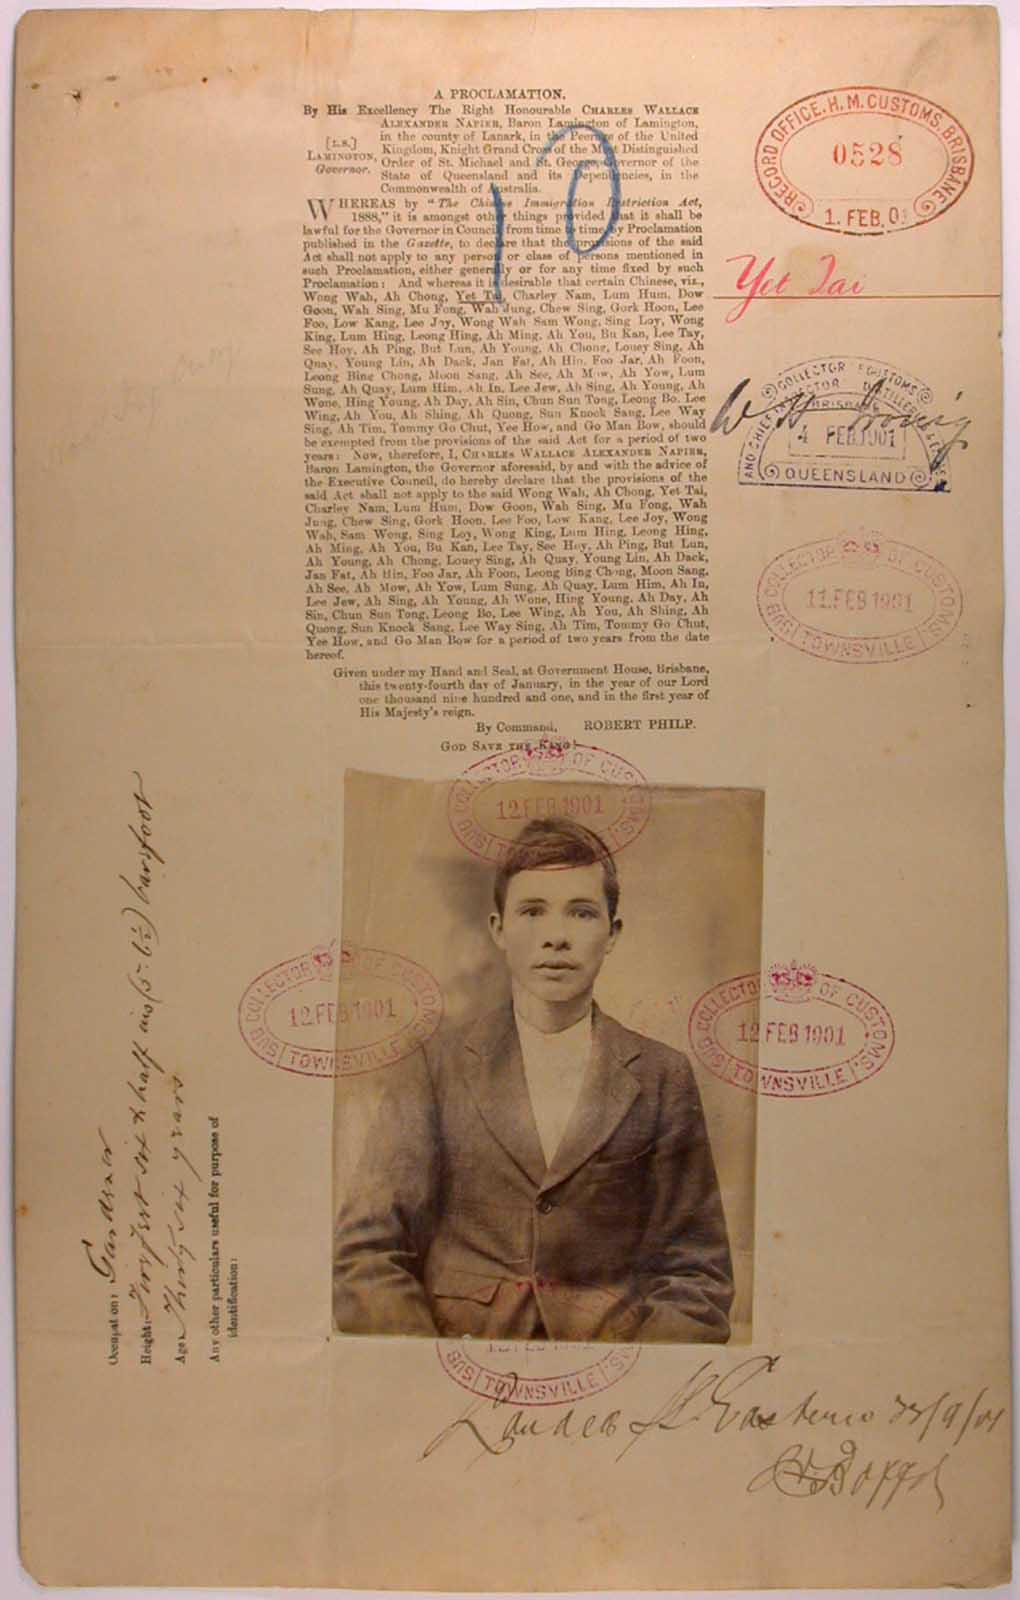 A PROCLAMATION.
By His Excellency The Right Honourable CHARLES WALLACE
ALEXANDER NAPIER, Baron Lamington of Lamington,
in the county of Lanark, in the Peerage of the United
Kingdom, Knight Grand Cross of the Most Distinguished
Order of St. Michael and St. George, Governor of the
State of Queensland and its Dependencies, in the
Commonwealth of Australia.
[L.S.]
LAMINGTON,
Governor.
WHEREAS by "The Chinese Immigration Restriction Act,
1888," it is amongst other things provided that it shall be
lawful for the Governor in Council from time to time, by Proclamation
published in the Gazette, to declare that the provisions of the said
Act shall not apply to any person or class of persons mentioned in
such Proclamation, either generally or for any time fixed by such
Proclamation: And whereas it is desirable that certain Chinese, viz.,
Wong Wah, Ah Chong, Yet Tai, Charley Nam, Lum Hum, Dow
Goon, Wah Sing, Mu Fong, Wah Jung, Chew Sing, Gork Hoon, Lee
Foo, Low Kang, Lee Joy, Wong Wah Sam Wong, Sing Loy, Wong
King, Lum Hing, Leong Hing, Ah Ming, Ah You, Bu Kan, Lee Tay,
See Hoy, Ah Ping, But Lun, Ah Young, Ah Chong, Louey Sing, Ah
Quay, Young Lin, Ah Dack, Jan Fat, Ah Hin, Foo Jar, Ah Foon,
Leong Bing Chong, Moon Sang, Ah See, Ah Mow, Ah Yow, Lum
Sung, Ah Quay, Lum Him, Ah In, Lee Jew, Ah Sing, Ah Young, Ah
Wone, Hing Young, Ah Day, Ah Sin, Chun Sun Tong, Leong Bo, Lee
Wing, Ah You, Ah Shing, Ah Quong, Sun Knock Sang, Lee Way
Sing, Ah Tim, Tommy Go Chut, Yee How, and Go Man Bow, should
be exempted from the provisions of the said Act for a period of two
years: Now, therefore, I, CHARLES WALLACE ALEXANDER NAPIER,
Baron Lamington, the Governor aforesaid, by and with the advice of
the Executive Council, do hereby declare that the provisions of the
said Act shall not apply to the said Wong Wah, Ah Chong, Yet Tai,
Charley Nam, Lum Hum, Dow Goon, Wah Sing, Mu Fong, Wah
Jung, Chew Sing, Gork Hoon, Lee Foo, Low Kang, Lee Joy, Wong
Wah, Sam Wong, Sing Loy, Wong King, Lum Hing, Leong Hing,
Ah Ming, Ah You, Bu Kan, Lee Tay, See Hoy, Ah Ping, But Lun,
Ah Young, Ah Chong, Louey Sing, Ah Quay, Young Lin, Ah Dack,
Jan Fat, Ah Hin, Foo Jar, Ah Foon, Leong Bing Chong, Moon Sang,
Ah See, Ah Mow, Ah Yow, Lum Sung, Ah Quay, Lum Him, Ah In,
Lee Jew, Ah Sing, Ah Young, Ah Wone, Hing Young, Ah Day, Ah
Sin, Chun Sun Tong, Leong Bo, Lee Wing, Ah You, Ah Shing, Ah
Quong, Sun Knock Sang, Lee Way Sing, Ah Tim, Tommy Go Chut,
Yee How, and Go Man Bow for a period of two years from the date
hereof.
Given under my Hand and Seal, at Government House, Brisbane,
this twenty-fourth day of January, in the year of our Lord
one thousand nine hundred and one, and in the first year of
His Majesty's reign.
By Command, ROBERT PHILP.
GOD SAVE THE KING!
10
RECORD OFFICE. H. M. CUSTOMS, BRISBANE
0528
1. FEB. 01
Yet Tai
COLLECTOR OF CUSTOMS
BRISBANE
4 FEB 1901
QUEENSLAND
W H Irving
SUB COLLECTOR OF CUSTOMS.
11. FEB 1901
TOWNSVILLE
SUB COLLECTOR OF CUSTOMS.
12 FEB 1901
TOWNSVILLE
SUB COLLECTOR OF CUSTOMS.
12 FEB 1901
TOWNSVILLE
SUB COLLECTOR OF CUSTOMS.
12 FEB 1901
TOWNSVILLE
SUB COLLECTOR OF CUSTOMS.
12 FEB 1901
TOWNSVILLE
Occupation: Gardener
Height: Five feet six & half ins (5-6½) barefoot
Age Thirty six years
Any other particulars useful for purpose of
identification:
Landed Eastern